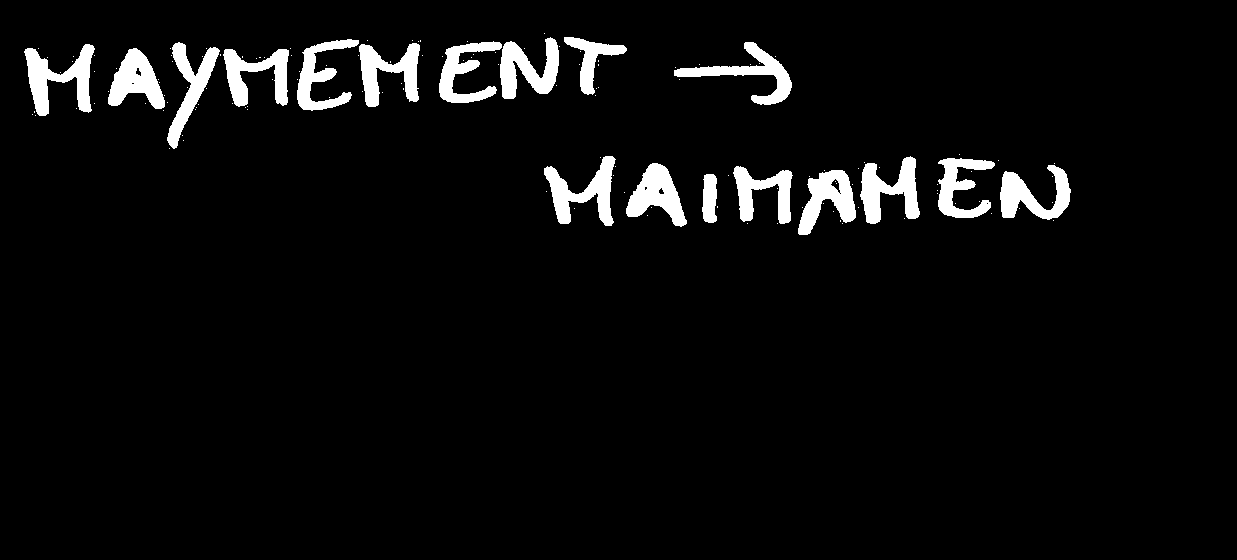 MAYMEMENT →
MAIMAMEN